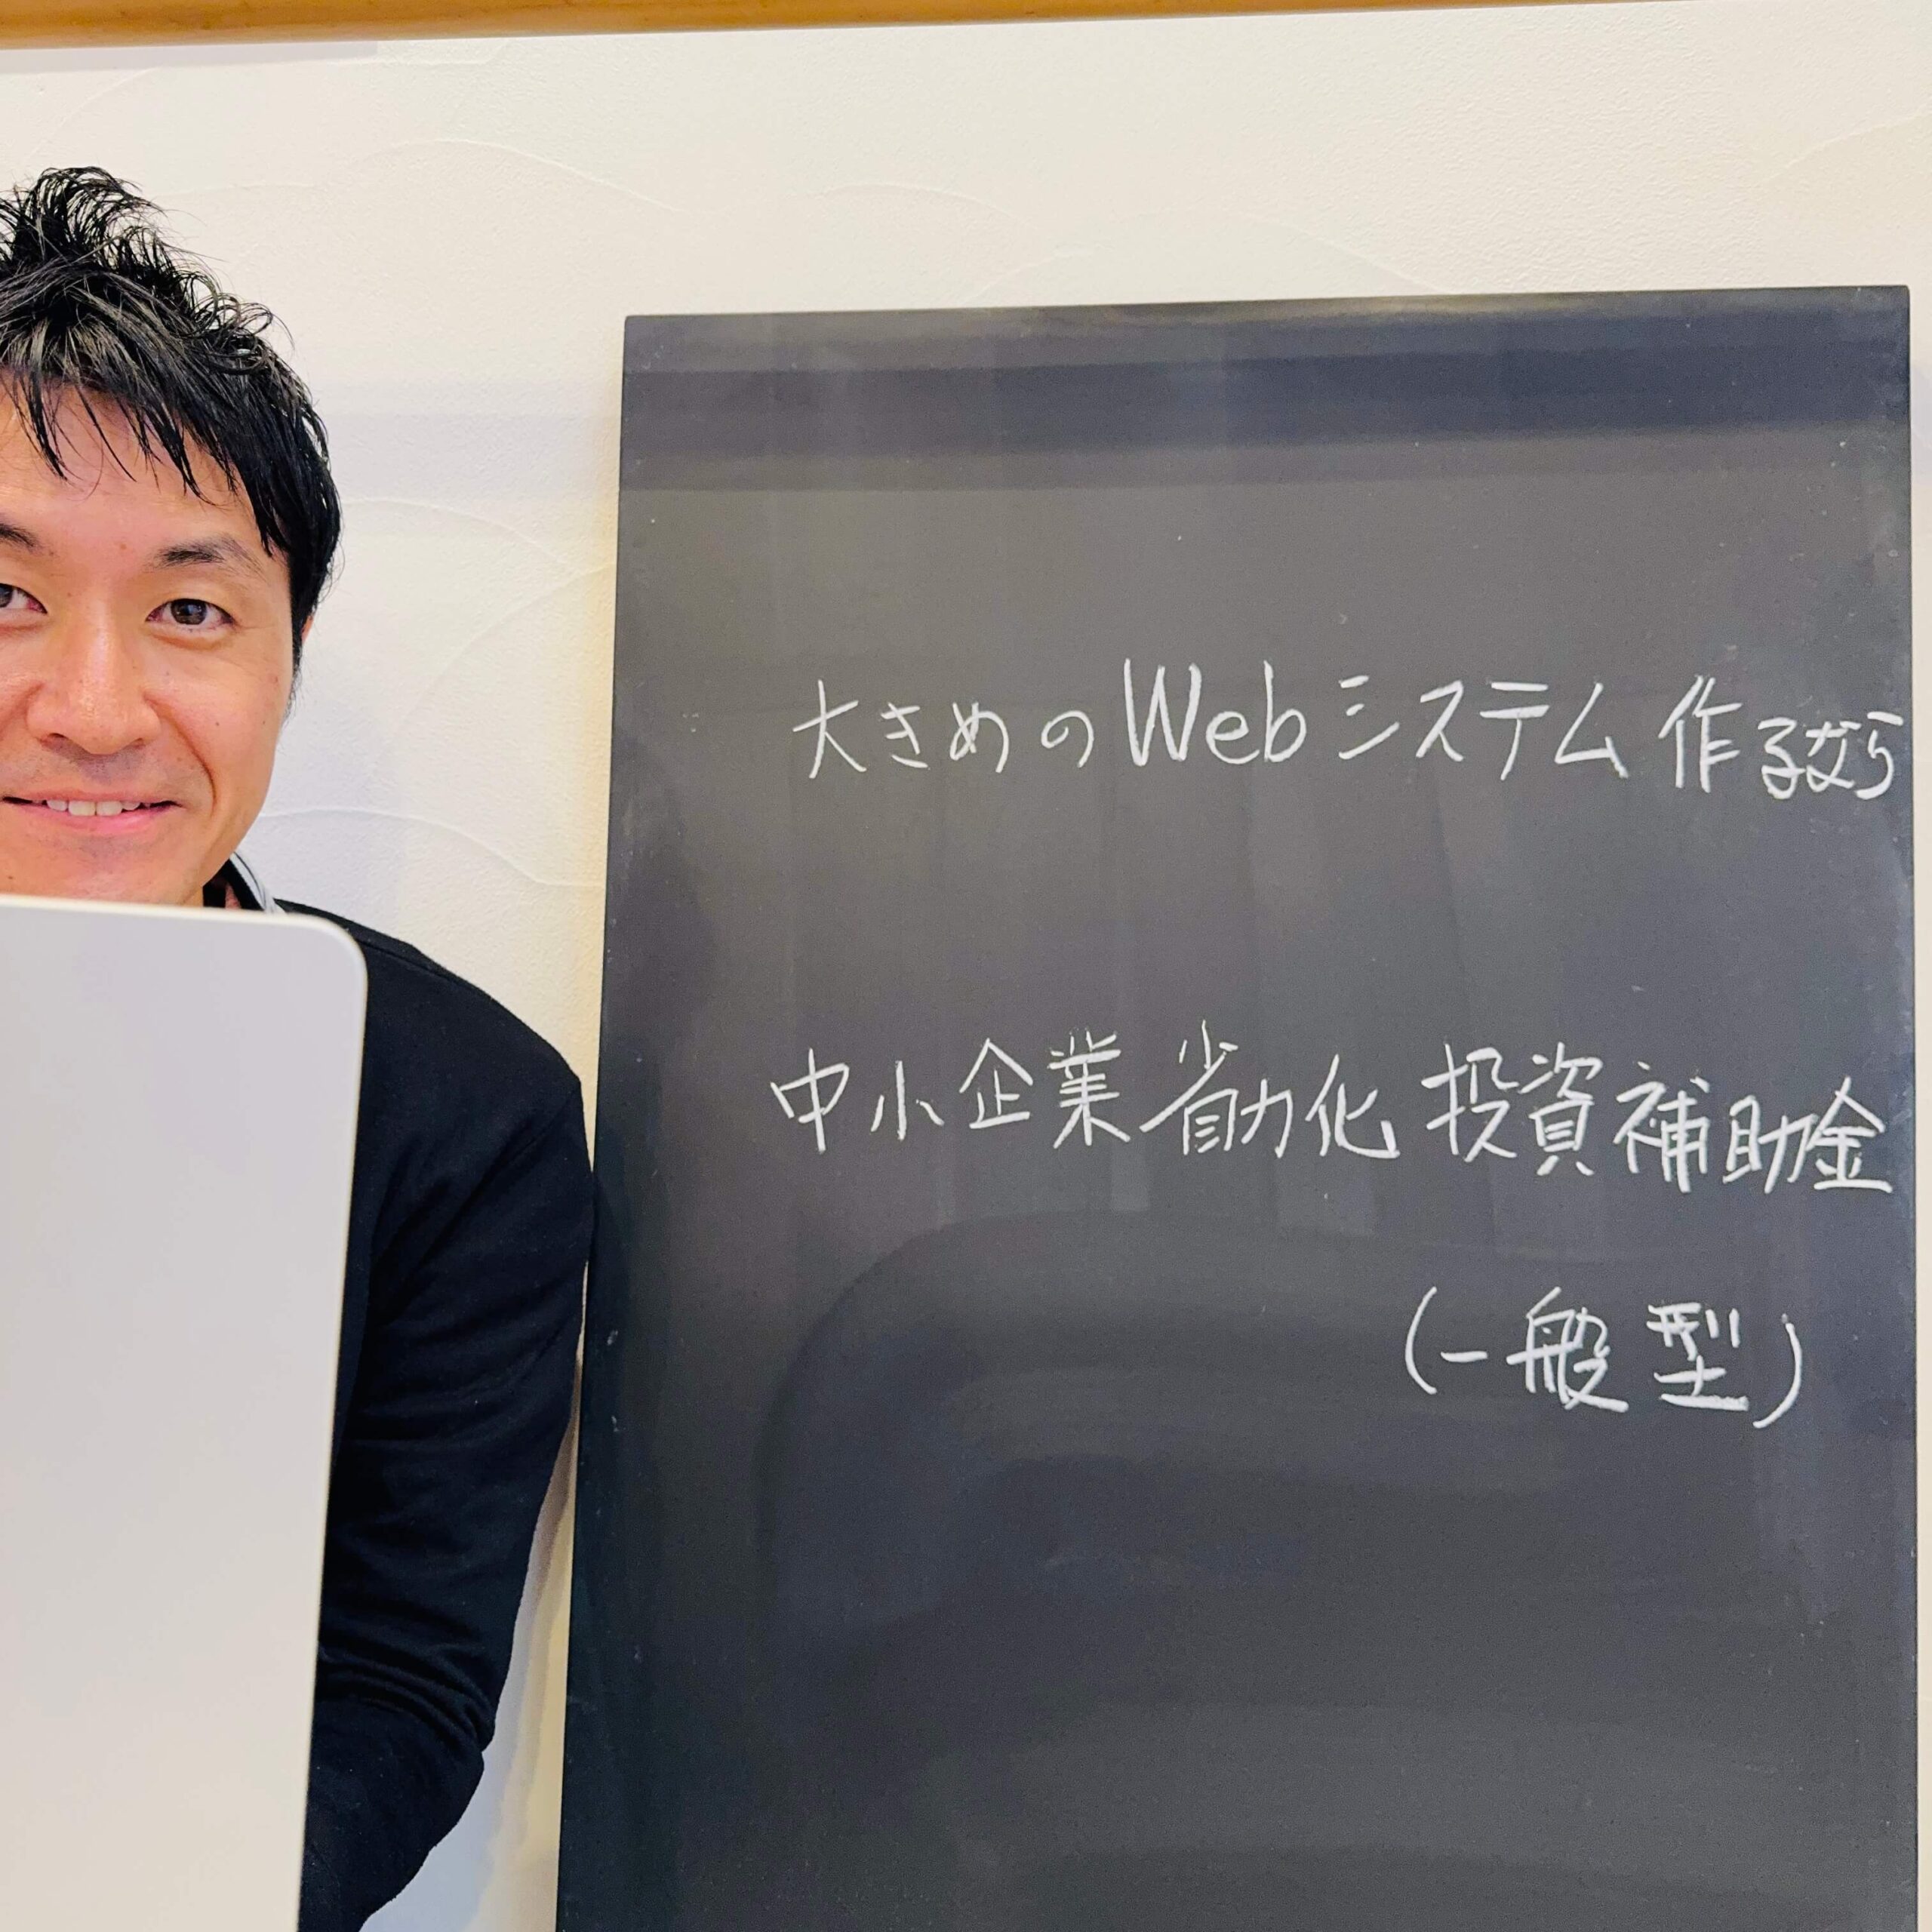 大きめのWebシステム作るなら
中小企業省力化投資補助金
(一般型)